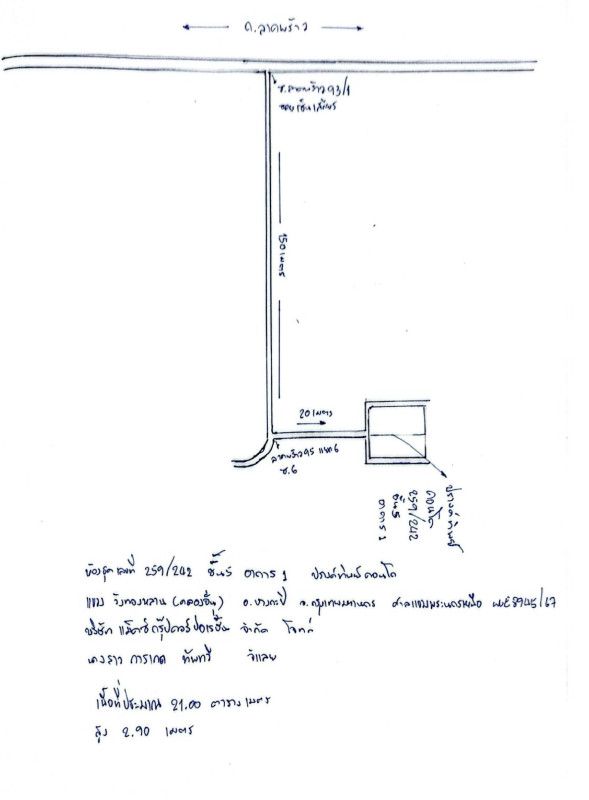 ถ.ลาดพร้าว
ซ.ลาดพร้าว 93/1
150 เมตร
20 เมตร
ลาดพร้าว 95 แยก 6
ซ.6
ปรางค์ทิพย์
คอนโด
259/242
ชั้น 5
อาคาร 1
ห้องชุดเลขที่ 259/242 ชั้น 5 อาคาร 1 ปรางค์ทิพย์คอนโด
แขวง วังทองหลาง (คลองจั่น) อ.บางกะปิ จ.กรุงเทพมหานคร ศาลแขวงพระนครเหนือ ผบE8945/67
บริษัท แม็คซ์กรุ๊ปคอร์ปอเรชั่น จำกัด โจทก์
นางสาว การเกด ทัพทวี จำเลย
เนื้อที่ประมาณ 21.00 ตารางเมตร
สูง 2.90 เมตร